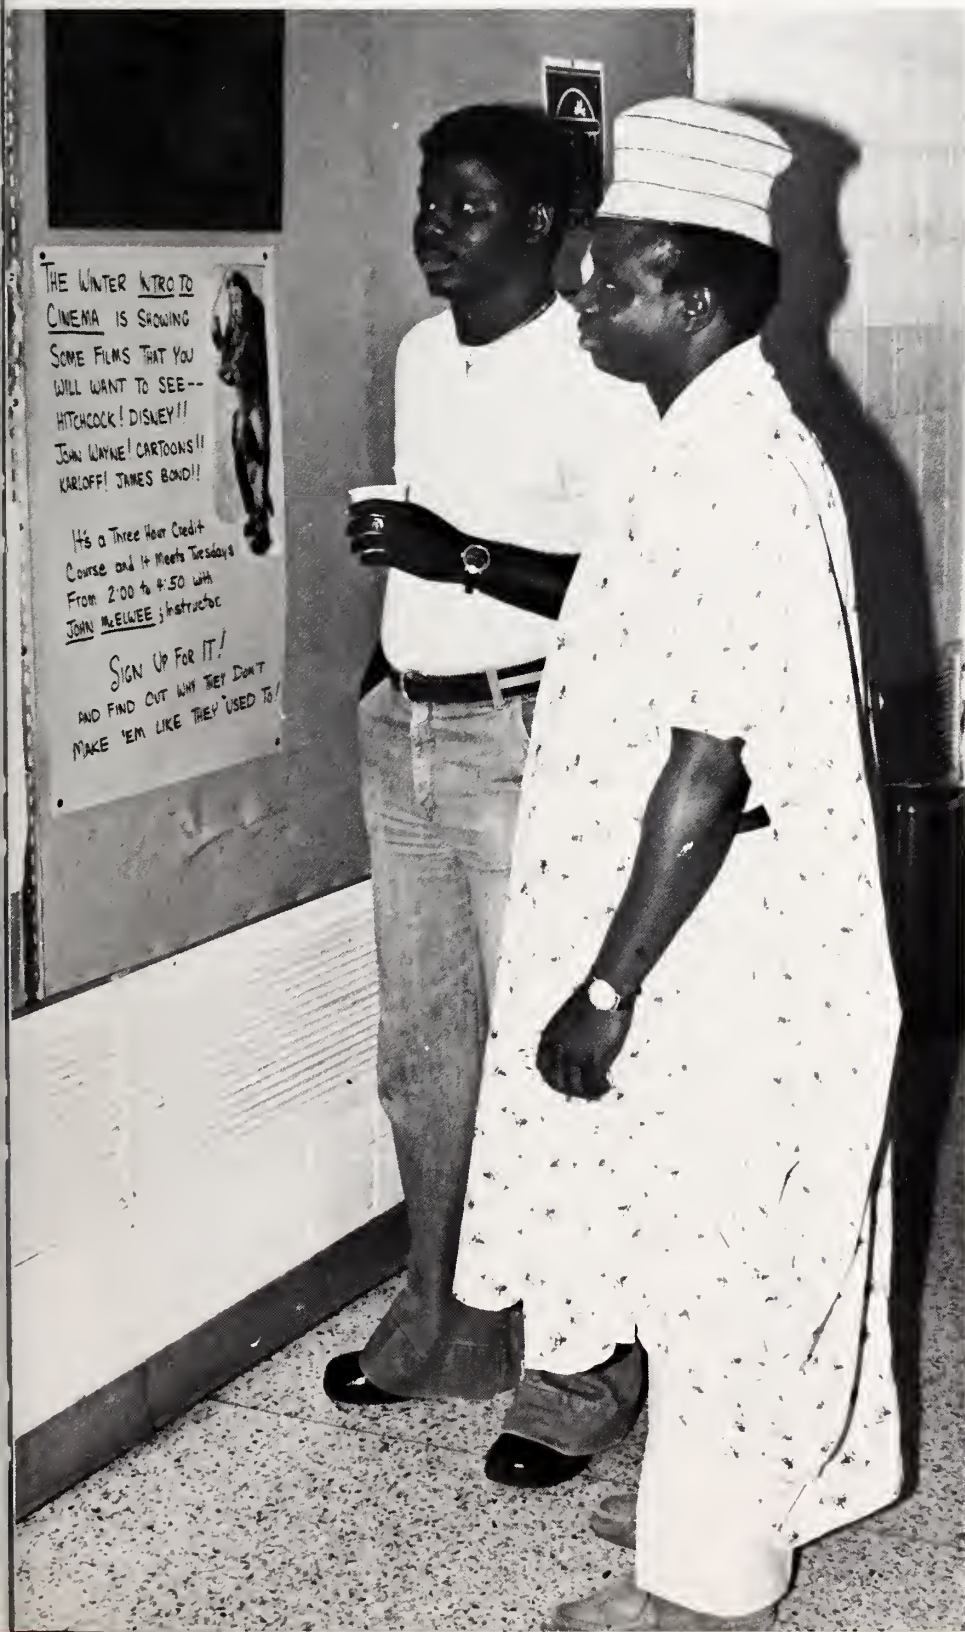 THE WINTER INTRO TO
CINEMA IS SHOWING
SOME FILMS THAT YOU
WILL WANT TO SEE--
HITCHCOCK! DISNEY!!
JOHN WAYNE! CARTOONS!!
KARLOFF! JAMES BOND!!
It's a Three Hour Credit
Course and It Meets Tuesdays
From 2:00 to 4:50 with
JOHN McELWEE; Instructor
SIGN UP FOR IT!
AND FIND OUT WHY THEY DON'T
MAKE 'EM LIKE THEY USED TO!